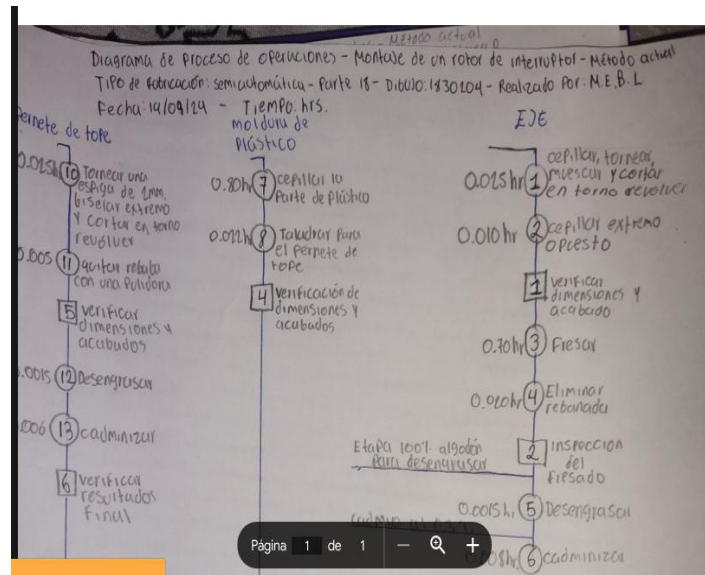 Método actual
Diagrama de Proceso de operaciones - Montaje de un rotor de interruptor - Método actual
Tipo de fabricación: semiautomática - Parte 18 - Dibujo: 1830204 - Realizado Por: M.E.B.L
Fecha: 14/09/24 - Tiempo: hrs.
ernete de tope
0.025h 10 Tornear una
espiga de 2mm,
biselar extremo
y cortar en torno
revolver
.005 11 quitar rebaba
con una pulidora
5 verificar
dimensiones y
acabados
.0015 12 Desengrasar
.006 13 cadminizar
6 verificar
resultados
Final
moldura de
Plástico
0.80h 7 cepillar la
Parte de Plástico
0.022h 8 Taladrar Para
el Pernete de
tope
4 Verificación de
dimensiones y
acabados
EJE
0.025hr 1 cepillar, tornear,
muescar y cortar
en torno revolver
0.010hr 2 cepillar extremo
opuesto
1 verificar
dimensiones y
acabado
0.70hr 3 Fresar
0.020hr 4 Eliminar
rebanada
Etapa 100% algodón
Para desengrasar
2 Inspección
del
fresado
0.0015h, 5 Desengrasar
cadmio al
.008hr 6 cadminizar
Página 1 de 1 — +